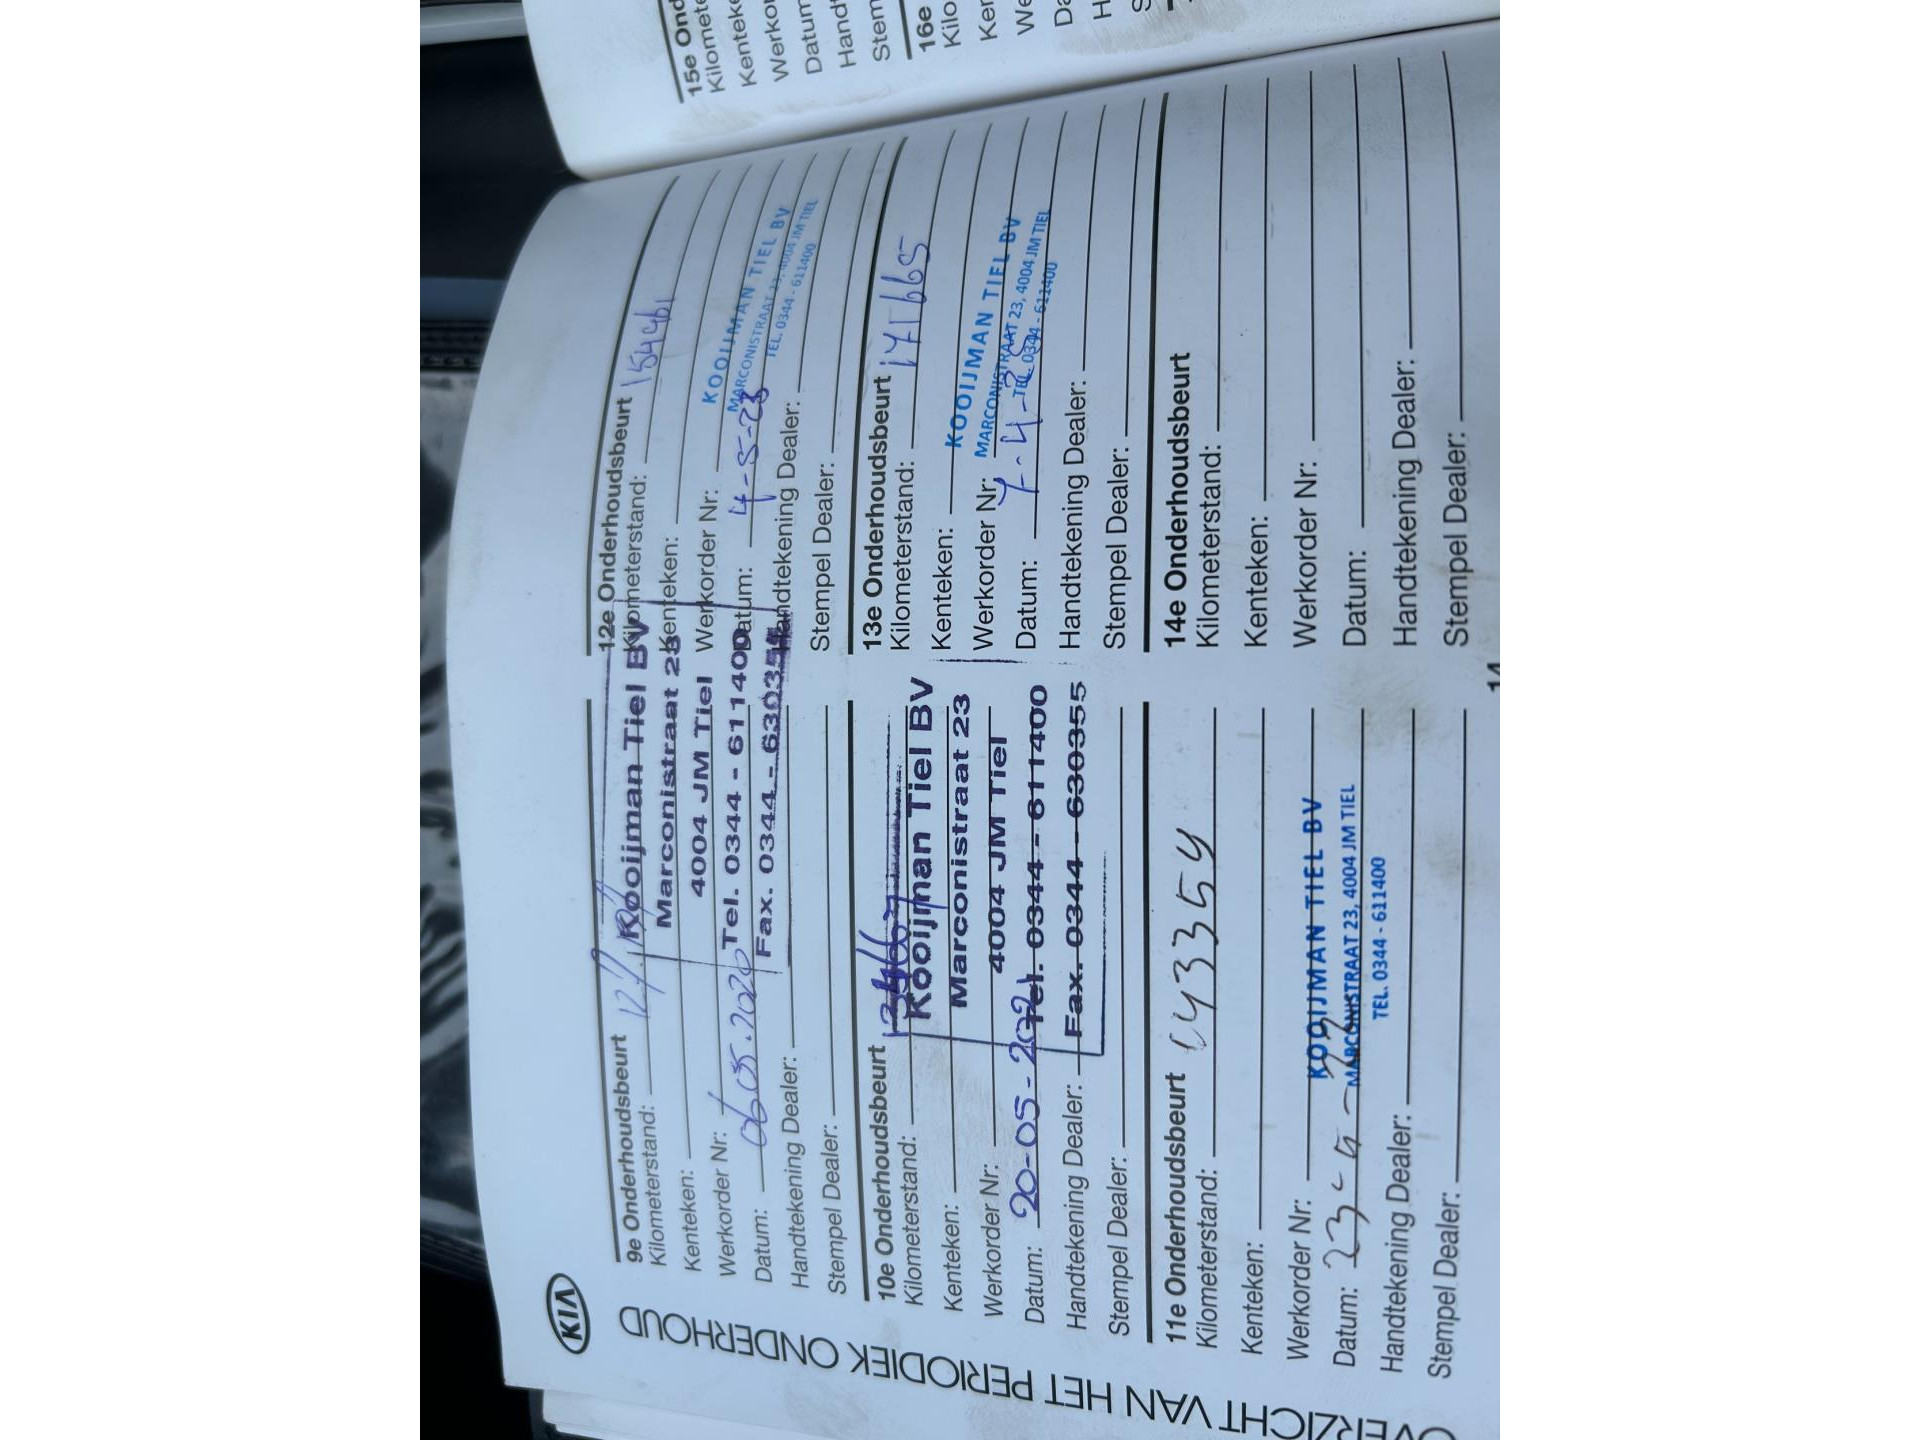 KIA
OVERZICHT VAN HET PERIODIEK ONDERHOUD
9e Onderhoudsbeurt
Kilometerstand:
Kenteken:
Werkorder Nr:
Datum: 06.05.2020
Handtekening Dealer:
Stempel Dealer:
Kooijman Tiel BV
Marconistraat 23
4004 JM Tiel
Tel. 0344 - 611400
Fax. 0344 - 630355
10e Onderhoudsbeurt
Kilometerstand:
Kenteken:
Werkorder Nr:
Datum: 20-05-2021
Handtekening Dealer:
Stempel Dealer:
Kooijman Tiel BV
Marconistraat 23
4004 JM Tiel
Tel. 0344 - 611400
Fax. 0344 - 630355
11e Onderhoudsbeurt
Kilometerstand: 143354
Kenteken:
Werkorder Nr:
Datum:
Handtekening Dealer:
Stempel Dealer:
KOOIJMAN TIEL BV
MARCONISTRAAT 23, 4004 JM TIEL
TEL. 0344 - 611400
12e Onderhoudsbeurt
Kilometerstand: 154461
Kenteken:
Werkorder Nr:
Datum: 4-5-23
Handtekening Dealer:
Stempel Dealer:
KOOIJMAN TIEL BV
MARCONISTRAAT 23, 4004 JM TIEL
TEL. 0344 - 611400
13e Onderhoudsbeurt
Kilometerstand: 171665
Kenteken:
Werkorder Nr:
Datum:
Handtekening Dealer:
Stempel Dealer:
KOOIJMAN TIEL BV
MARCONISTRAAT 23, 4004 JM TIEL
TEL. 0344 - 611400
14e Onderhoudsbeurt
Kilometerstand:
Kenteken:
Werkorder Nr:
Datum:
Handtekening Dealer:
Stempel Dealer:
14
15e Ond
Kilomete
Kentek
Werko
Datum
Hand
Stem
16e
Kilo
Ker
We
Da
H
S